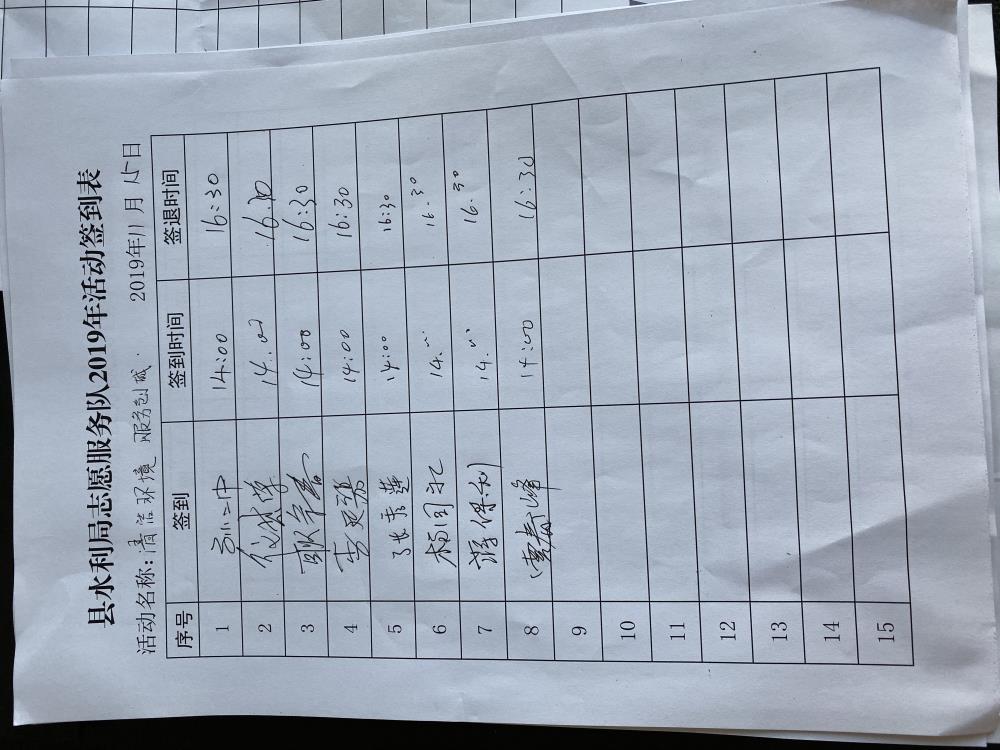 县水利局志愿服务队2019年活动签到表
活动名称：清洁环境 服务创城. 2019年11月15日
序号 签到 签到时间 签退时间
1 14:00 16:30
2 14.00 16:30
3 14:00 16:30
4 14:00 16:30
5 张秀莲 14:00 16:30
6 14. 16.30
7 14. 16.30
8 贾春峰 14:00 16:30
9
10
11
12
13
14
15